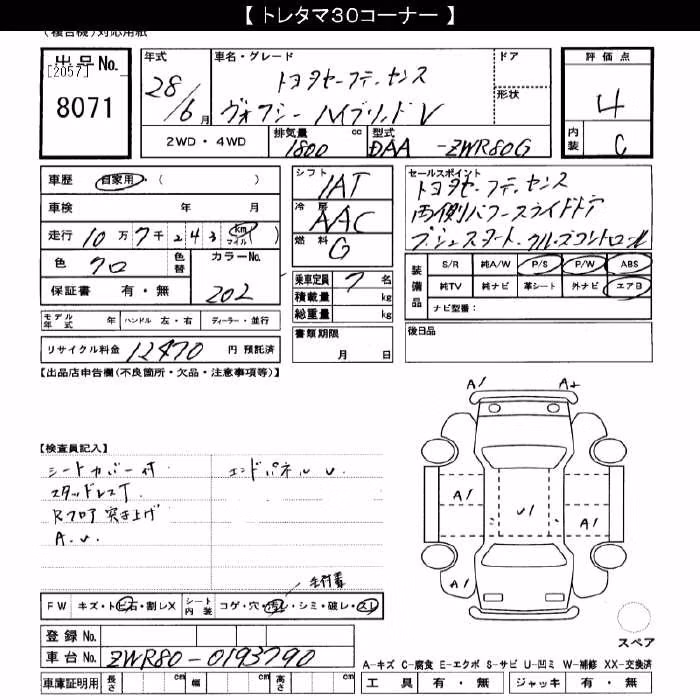 【 トレタマ30コーナー 】
(複合機)対応用紙
出品No.
[2057]
8071
年式
28/6月
車名・グレード
トヨタセーフティセンス
ヴォクシー ハイブリッドV
ドア
形状
評価点
4
内装
C
2WD・4WD
排気量
1800 cc
型式
DAA -ZWR80G
車歴 自家用・( )
車検 年 月
走行 10万7千243 km マイル
色 クロ 色替
カラーNo. 202
保証書 有・無
シフト
IAT
冷房
AAC
燃料
G
乗車定員 7名
積載量 kg
総重量 kg
書類期限
月 日
セールスポイント
トヨタセーフティセンス
両側パワースライドドア
プッシュスタート.クルーズコントロール
装備品
S/R 純A/W P/S P/W ABS
純TV 純ナビ 革シート 外ナビ エアB
ナビ型番:
後日品
モデル年式 年 ハンドル 左・右 ディーラー・並行
リサイクル料金 12470 円 預託済
【出品店申告欄(不良箇所・欠品・注意事項等)】
【検査員記入】
シートカバー付
スタッドレスT
Rフロア突き上げ
A.U.
エンドパネル U
A1
A2
A1
U1
A1
A1
A1
スペア
毛付着
FW キズ・トビ石・割レX
シート内装 コゲ・穴・汚レ・シミ・破レ・スレ
登録No.
車台No. ZWR80-0193790
車庫証明用 長さ cm 幅 cm 高さ cm
A-キズ C-腐食 E-エクボ S-サビ U-凹ミ W-補修 XX-交換済
工具 有・無 ジャッキ 有・無